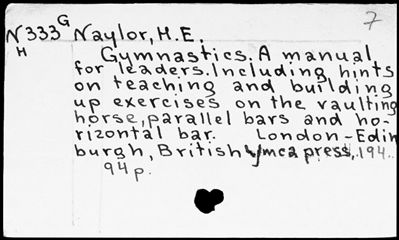 7
N333G Naylor, H.E.
H Gymnastics. A manual
for leaders. Including hints
on teaching and building
up exercises on the vaulting
horse, parallel bars and ho-
rizontal bar. London-Edin
burgh, British ymca press, 194..
94 p.